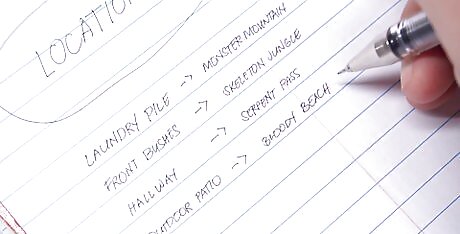 LOCATION
LAUNDRY PILE -> MONSTER MOUNTAIN
FRONT BUSHES -> SKELETON JUNGLE
HALLWAY -> SERPENT PASS
OUTDOOR PATIO -> BLOODY BEACH